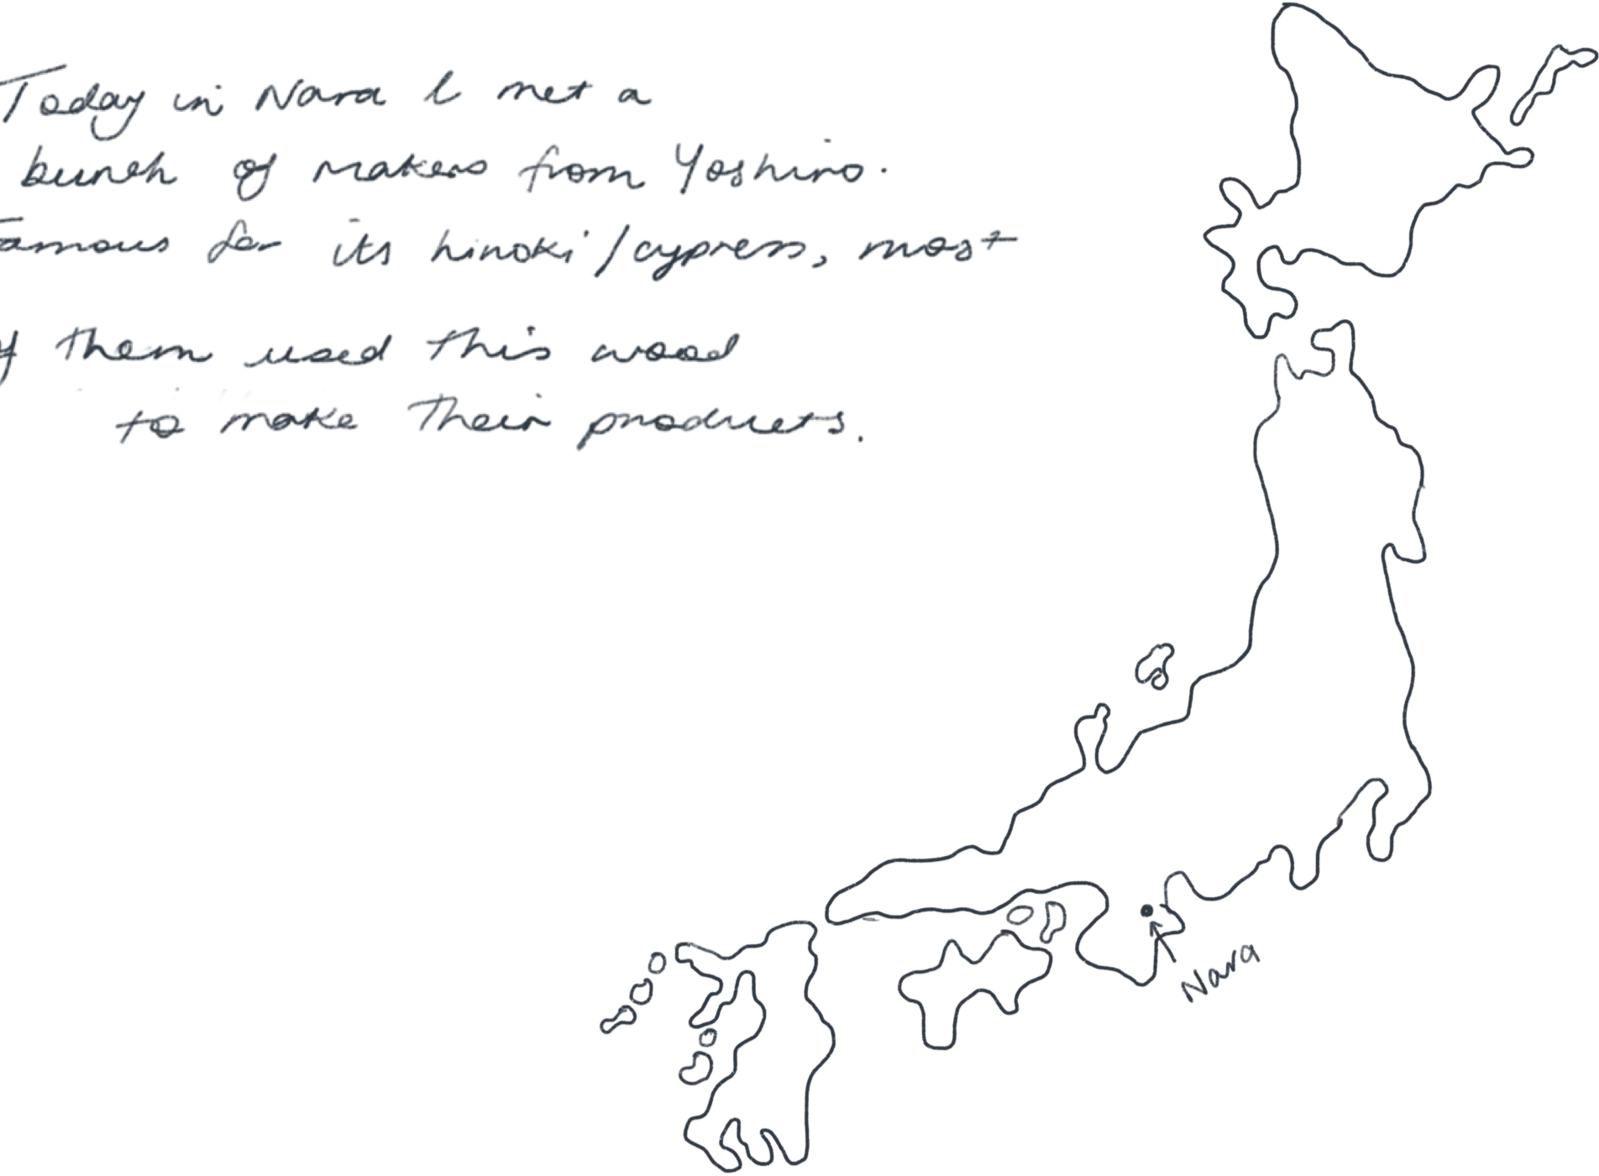 Today in Nara I met a
bunch of makers from Yoshiro.
Famous for its hinoki/cypress, most
of them used this wood
to make their products.
Nara